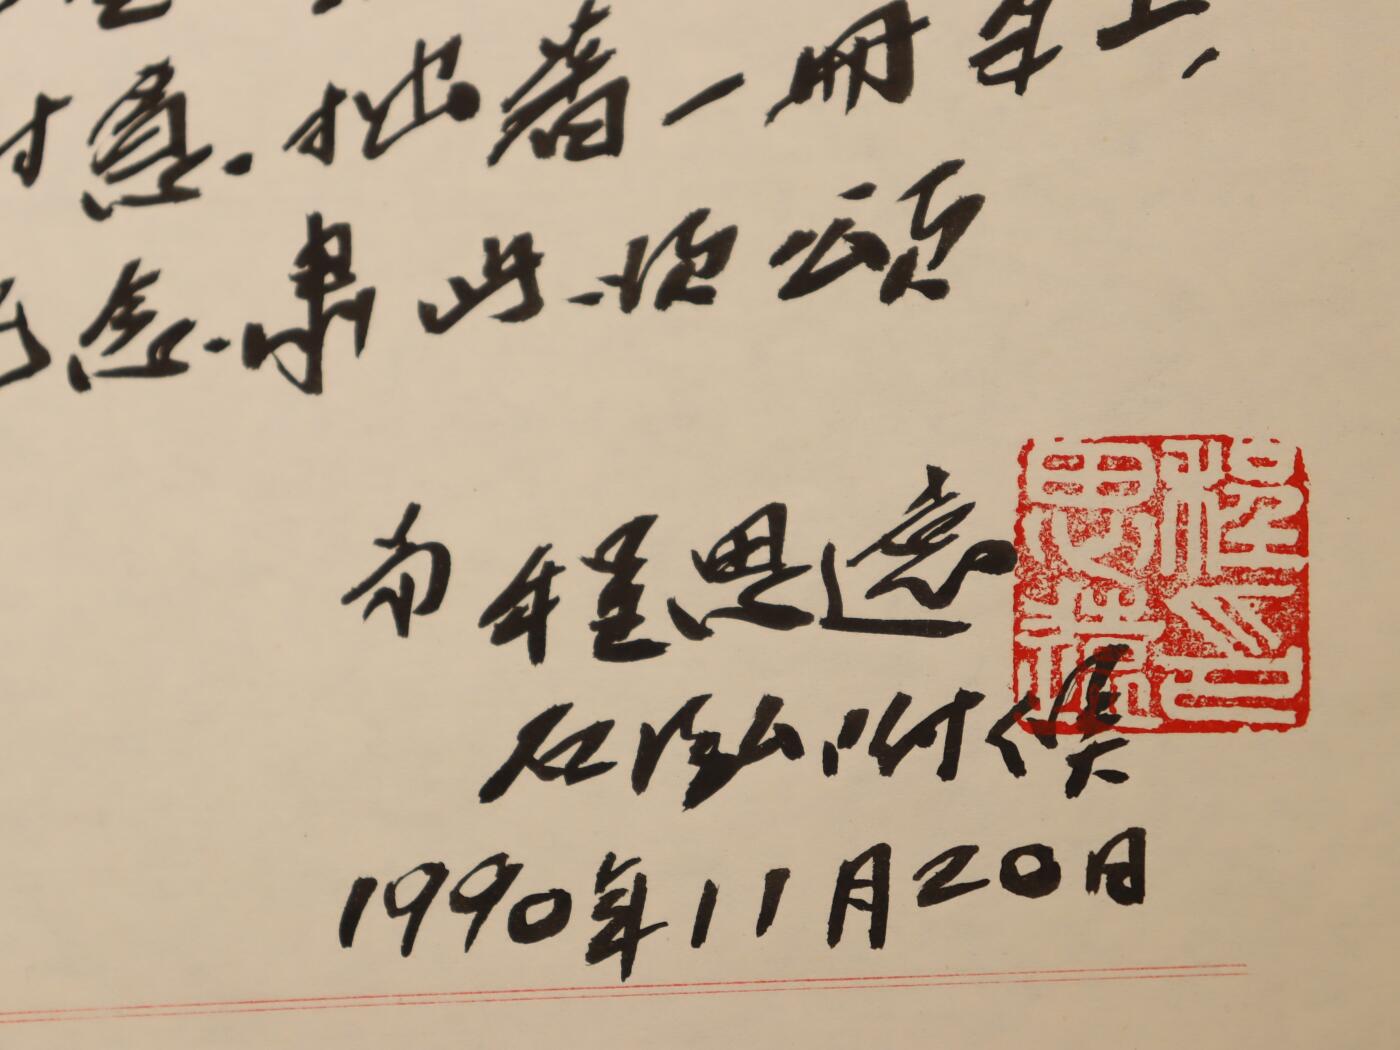 意.拙著一冊奉上,
念.肃此.顺颂
弟 程思遠
石泓附候
1990年11月20日
程思遠印